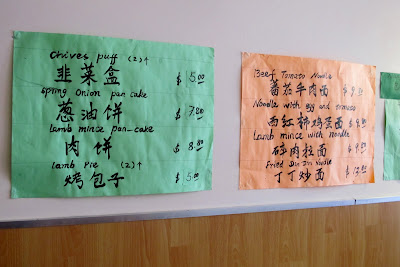 Chives puff (2)↑
韭菜盒 $5.00
Spring Onion pan cake
葱油饼 $7.80
Lamb mince pan-cake
肉饼 $8.80
Lamb Pie (2)↑
烤包子 $5.
Beef Tomato Noodle
蕃茄牛肉面
Noodle with egg and tomato
西红柿鸡蛋面
Lamb mince with noodle
碎肉拉面
Fried Din Din Noodle
丁丁炒面